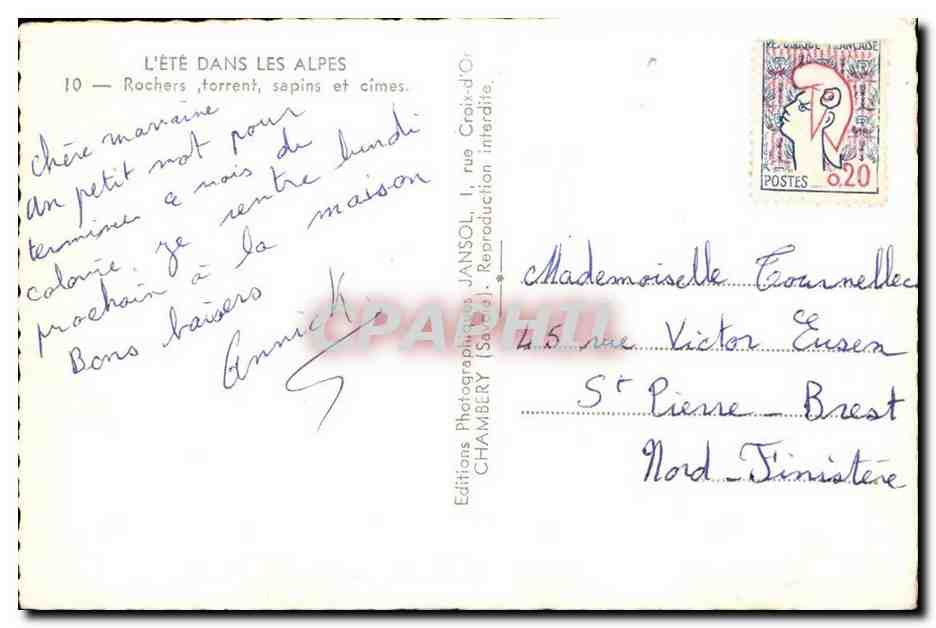 L'ÉTÉ DANS LES ALPES
10 — Rochers ,torrent, sapins et cîmes.
chère marraine
un petit mot pour
terminer ce mois de
colonie. je rentre lundi
prochain à la maison
Bons baisers
Annick
Editions Photographiques JANSOL, 1, rue Croix-d'Or
CHAMBERY (Savoie). Reproduction interdite.
REPUBLIQUE FRANÇAISE
POSTES 0,20
Mademoiselle Tournellec
45 rue Victor Eusen
St Pierre - Brest
Nord - Finistère
CPAPHIL